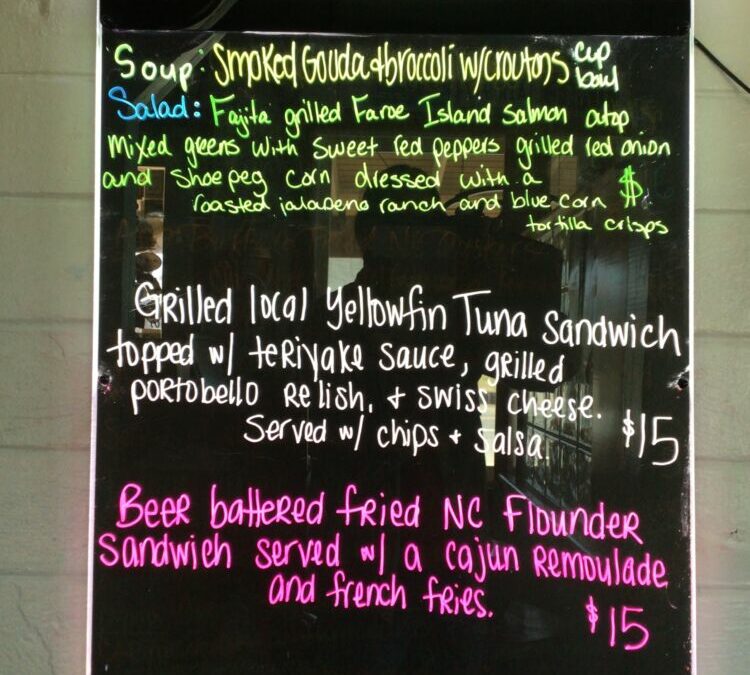 Soup: Smoked Gouda + broccoli w/croutons cup
bowl
Salad: Fajita grilled Faroe Island salmon atop
Mixed greens with sweet red peppers grilled red onion
and shoepeg corn dressed with a $
roasted jalapeno ranch and blue corn
tortilla crisps
Grilled local Yellowfin Tuna Sandwich
topped w/ teriyake sauce, grilled
portobello relish, + swiss cheese.
Served w/ chips + salsa. $15
Beer battered fried NC Flounder
Sandwich served w/ a cajun remoulade
and french fries.
$15